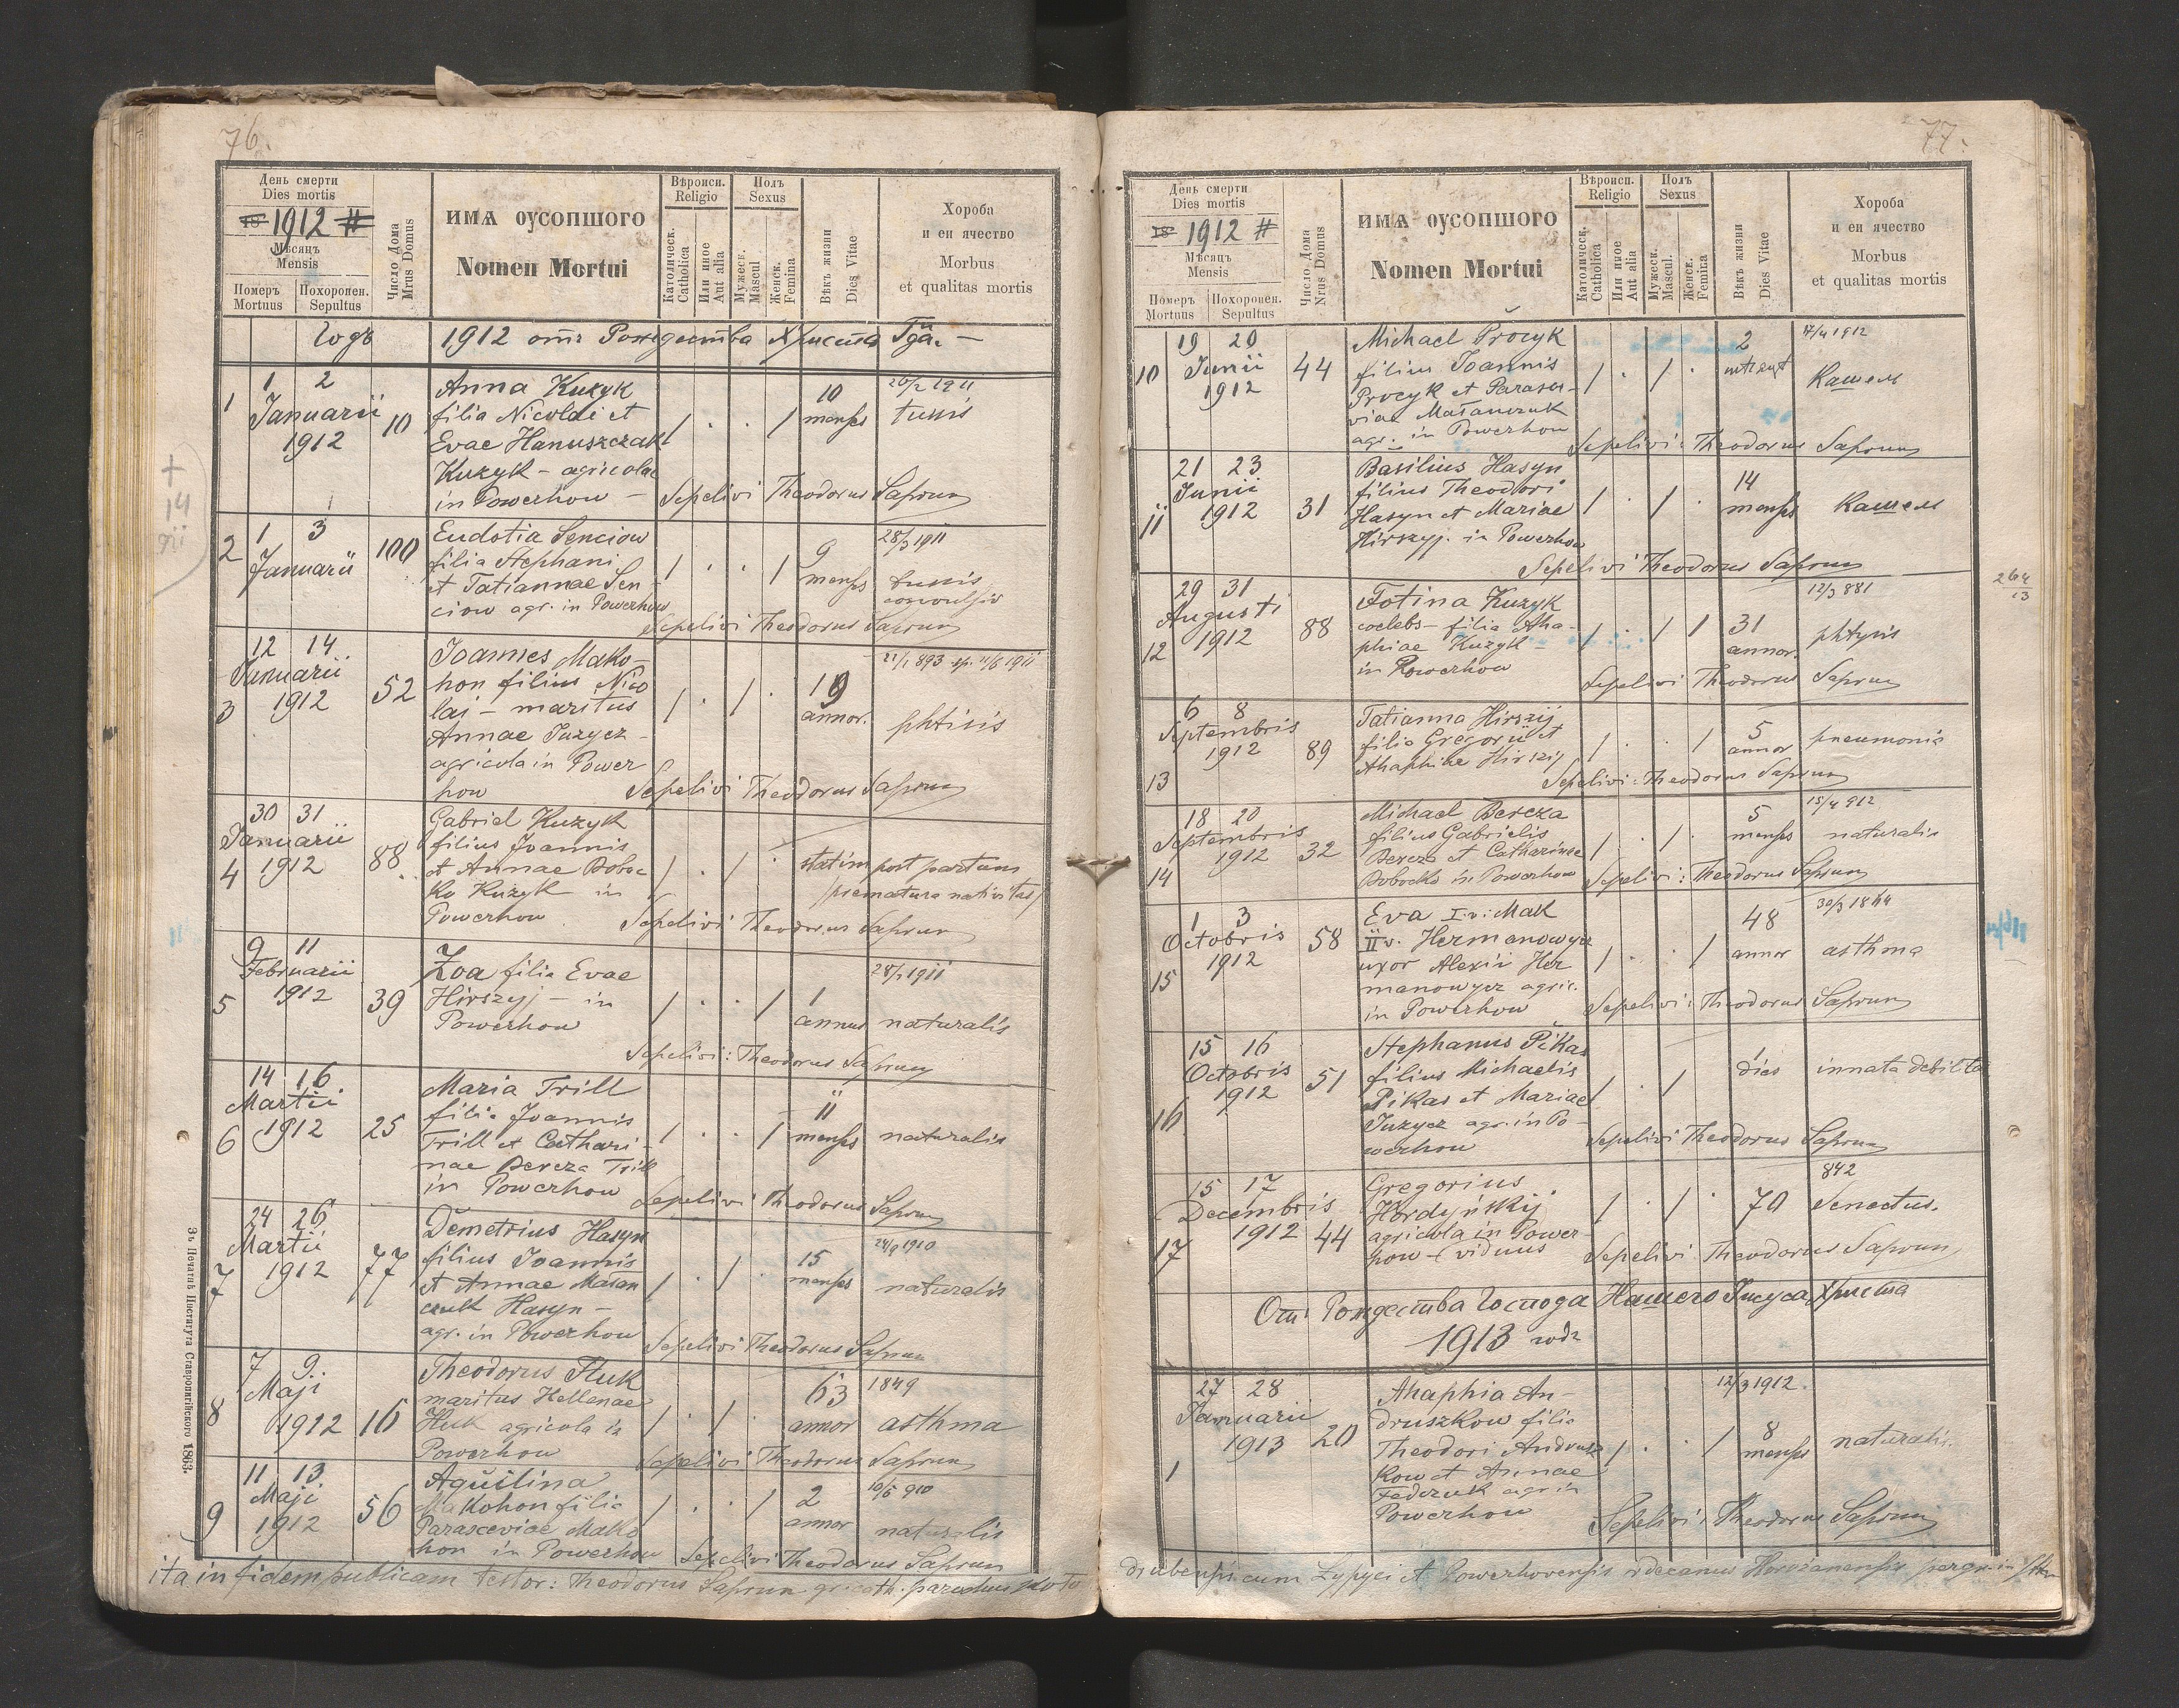 76.
День смерти
Dies mortis
18 1912 #
Мѣсяцъ
Mensis
Померъ Mortuus
Похоронен. Sepultus
Число Дома
Mrus Domus
ИМѦ ОУСОПШОГО
Nomen Mortui
Вѣроисп.
Religio
Католическ.
Catholica
Или иное
Aut alia
Полъ
Sexus
Мужеск.
Mascul
Женск.
Femina
Вѣкъ жизни
Dies Vitae
Хороба
и еи ячество
Morbus
et qualitas mortis
Годъ 1912 отъ Рождества Христа
1 2
1 Januarii 10
1912
Anna Kuzyk
filia Nicolai et
Evae Hanuszczak
Kuzyk - agricolae
in Powerhow -
10
menses
tussis
Sepelivi Theodorus Saprun
1 3
2 Januarii 100
Eudotia Senciow
filia Stephani
et Tatiannae Sen
ciow agr. in Powerhow
9
menses
28/3 1911
tussis
Sepelivi Theodorus Saprun
12 14
Januarii
3 1912 52
Joannes Mako-
hon filius Nico
laj - maritus
Annae Juzycz -
agricola in Power
how
19
annor.
phtisis
Sepelivi Theodorus Saprun
30 31
Januarii
4 1912 88
Gabriel Kuzyk
filius Joannis
et Annae Boboc
ko Kuzyk in
Powerhow
statim post partum
/prematura nativitas/
Sepelivi Theodorus Saprun
9 11
Februarii
5 1912 39
Zoa filia Evae
Hirszyj - in
Powerhow
1
annus
naturalis
Sepelivi: Theodorus Saprun
14 16
Martii
6 1912 25
Maria Trill
filia Joannis
Trill et Cathari-
nae Bereza Trill
in Powerhow
11
menses
naturalis
Sepelivi Theodorus Saprun
24 26
Martii
7 1912 77
Demetrius Hasyn
filius Joannis
et Annae Matan
czuk Hasyn -
agr. in Powerhow
15
menses
24/9 1910
naturalis
Sepelivi Theodorus Saprun
7 9
Maji
8 1912 16
Theodorus Huk
maritus Hellenae
Huk agricola in
Powerhow
63
annor
1849
asthma
Sepelivi Theodorus Saprun
11 13
Maji
9 1912 56
Aquilina
Makohon filia
Parasceviae Mako
hon in Powerhow
2
annor
10/5 910
naturalis
Sepelivi Theodorus Saprun
ita in fidem publicam testor: Theodorus Saprun gr. cath. parochus
Зъ Печатнѣ Института Ставропигійского 1863.
+
14
911
77.
День смерти
Dies mortis
18 1912 #
Мѣсяцъ
Mensis
Померъ Mortuus
Похоронен. Sepultus
Число Дома
Nrus Domus
ИМѦ ОУСОПШОГО
Nomen Mortui
Вѣроисп.
Religio
Католическ.
Catholica
Или иное
Aut alia
Полъ
Sexus
Мужеск.
Mascul.
Женск.
Femina
Вѣкъ жизни
Dies Vitae
Хороба
и еи ячество
Morbus
et qualitas mortis
19 20
10 Junii 44
1912
Michael Procyk
filius Joannis
Procyk et Parasce-
viae Matanczuk
agr. in Powerhow
2
17/4 1912
Кашель
Sepelivi: Theodorus Saprun
21 23
Junii
11 1912 31
Basilius Hasyn
filius Theodori
Hasyn et Mariae
Hirszyj. in Powerhow
14
menses
Кашель
Sepelivi Theodorus Saprun
29 31
Augusti
12 1912 88
Fotina Kuzyk
coelebs - filia Aha-
phiae Kuzyk -
in Powerhow
31
annor.
12/3 881
phtysis
Sepelivi Theodorus Saprun
264
13
6 8
Septembris
13 1912 89
Tatianna Hirszij
filia Gregorii et
Ahaphiae Hirszij
5
annor
pneumonia
Sepelivi: Theodorus Saprun
18 20
Septembris
14 1912 32
Michael Bereza
filius Gabrielis
Bereza et Catharinae
Bobocko in Powerhow
5
menses
15/4 912
naturalis
Sepelivi: Theodorus Saprun
1 3
Octobris
15 1912 58
Eva I.v. Mak
II v. Hermanowycz
uxor Alexii Her
manowycz agric.
in Powerhow
48
annor
asthma
Sepelivi: Theodorus Saprun
15 16
Octobris
16 1912 51
Stephanus Pikas
filius Michaelis
Pikas et Mariae
Juzycz agr. in Po-
werhow
1
dies
innata debilita
Sepelivi Theodorus Saprun
15 17
Decembris
17 1912 44
Gregorius
Hordyńskij
agricola in Power-
how - viduus
70
842
Senectus.
Sepelivi Theodorus Saprun
Отъ Рождества Господа Нашего Іисуса Христа
1913 годъ
27 28
Januarii
1 1913 20
Ahaphia An-
druszkow filia
Theodori Andrusz
kow et Annae
Fedczuk agr. in
Powerhow
8
menses
12/3 1912.
naturalis.
Sepelivi: Theodorus Saprun
cum et Powerhovensis